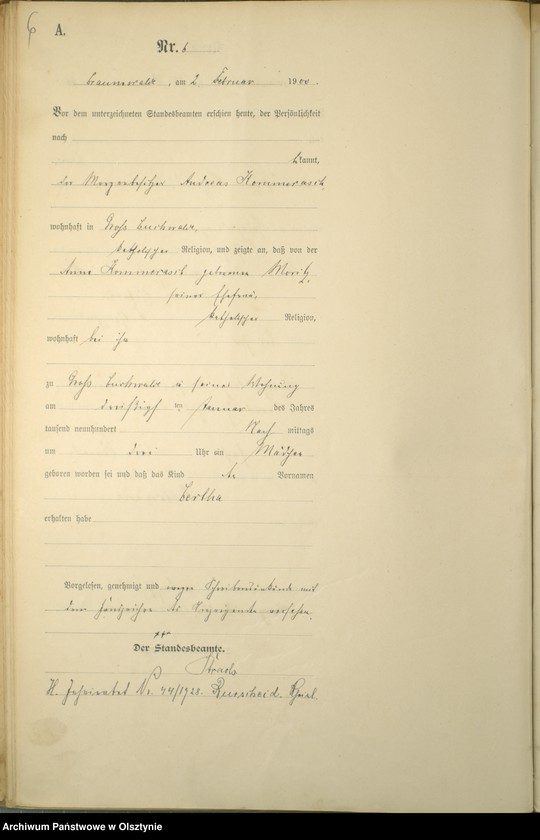 6
A.
Nr. 6
Braunswalde, am 2 Februar 1900.
Vor dem unterzeichneten Standesbeamten erschien heute, der Persönlichkeit
nach
bekannt,
der Andreas Kommerasch
wohnhaft in Groß Buchwalde,
katholischer Religion, und zeigte an, daß von der
Anna Kommerasch geborene Moritz,
seiner Ehefrau,
katholischer Religion,
wohnhaft bei ihm
zu Groß Buchwalde in seiner Wohnung
am dreißigsten Januar des Jahres
tausend neunhundert Nachmittags
um drei Uhr ein Mädchen
geboren worden sei und daß das Kind den Vornamen
Bertha
erhalten habe
Vorgelesen, genehmigt und wegen Schreibensunkunde mit
dem Handzeichen des Anzeigenden versehen.
+++
Der Standesbeamte.
H. Geheiratet Nr. 44/1921.
Archiwum Państwowe w Olsztynie